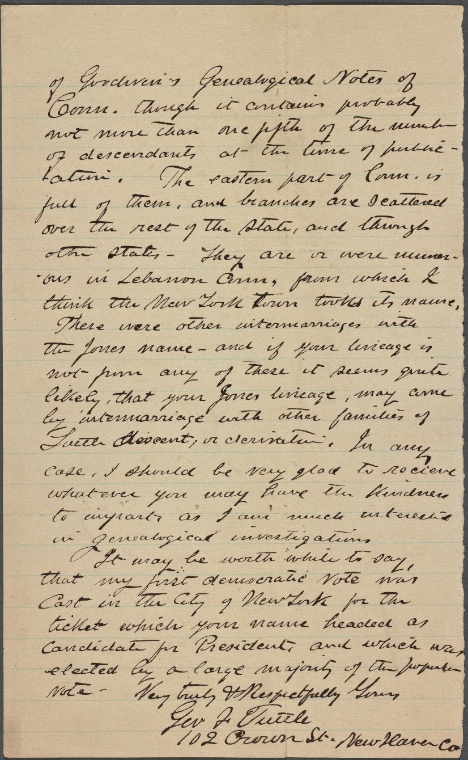 of Goodwin's Genealogical Notes of
Conn. though it contains probably
not more than one fifth of the number
of descendants at the time of public-
ation. The eastern part of Conn. is
full of them, and branches are scattered
over the rest of the State, and through
other States - They are or were numer-
ous in Lebanon Conn, from which I
think the New York town took its name.
There were other intermarriages with
the Jones name - and if your lineage is
not from any of these it seems quite
likely, that your Jones lineage, may come
by intermarriage with other families of
Tuttle descent, or derivation. In any
case, I should be very glad to recieve
whatever you may have the kindness
to impart, as I am much interested
in genealogical investigations
It may be worth while to say,
that my first democratic vote was
cast in the City of New York for the
ticket which your name headed as
candidate for President, and which was
elected by a large majority of the popular
vote - Very truly & Respectfully Yours
Geo F Tuttle
102 Crown St. New Haven Co